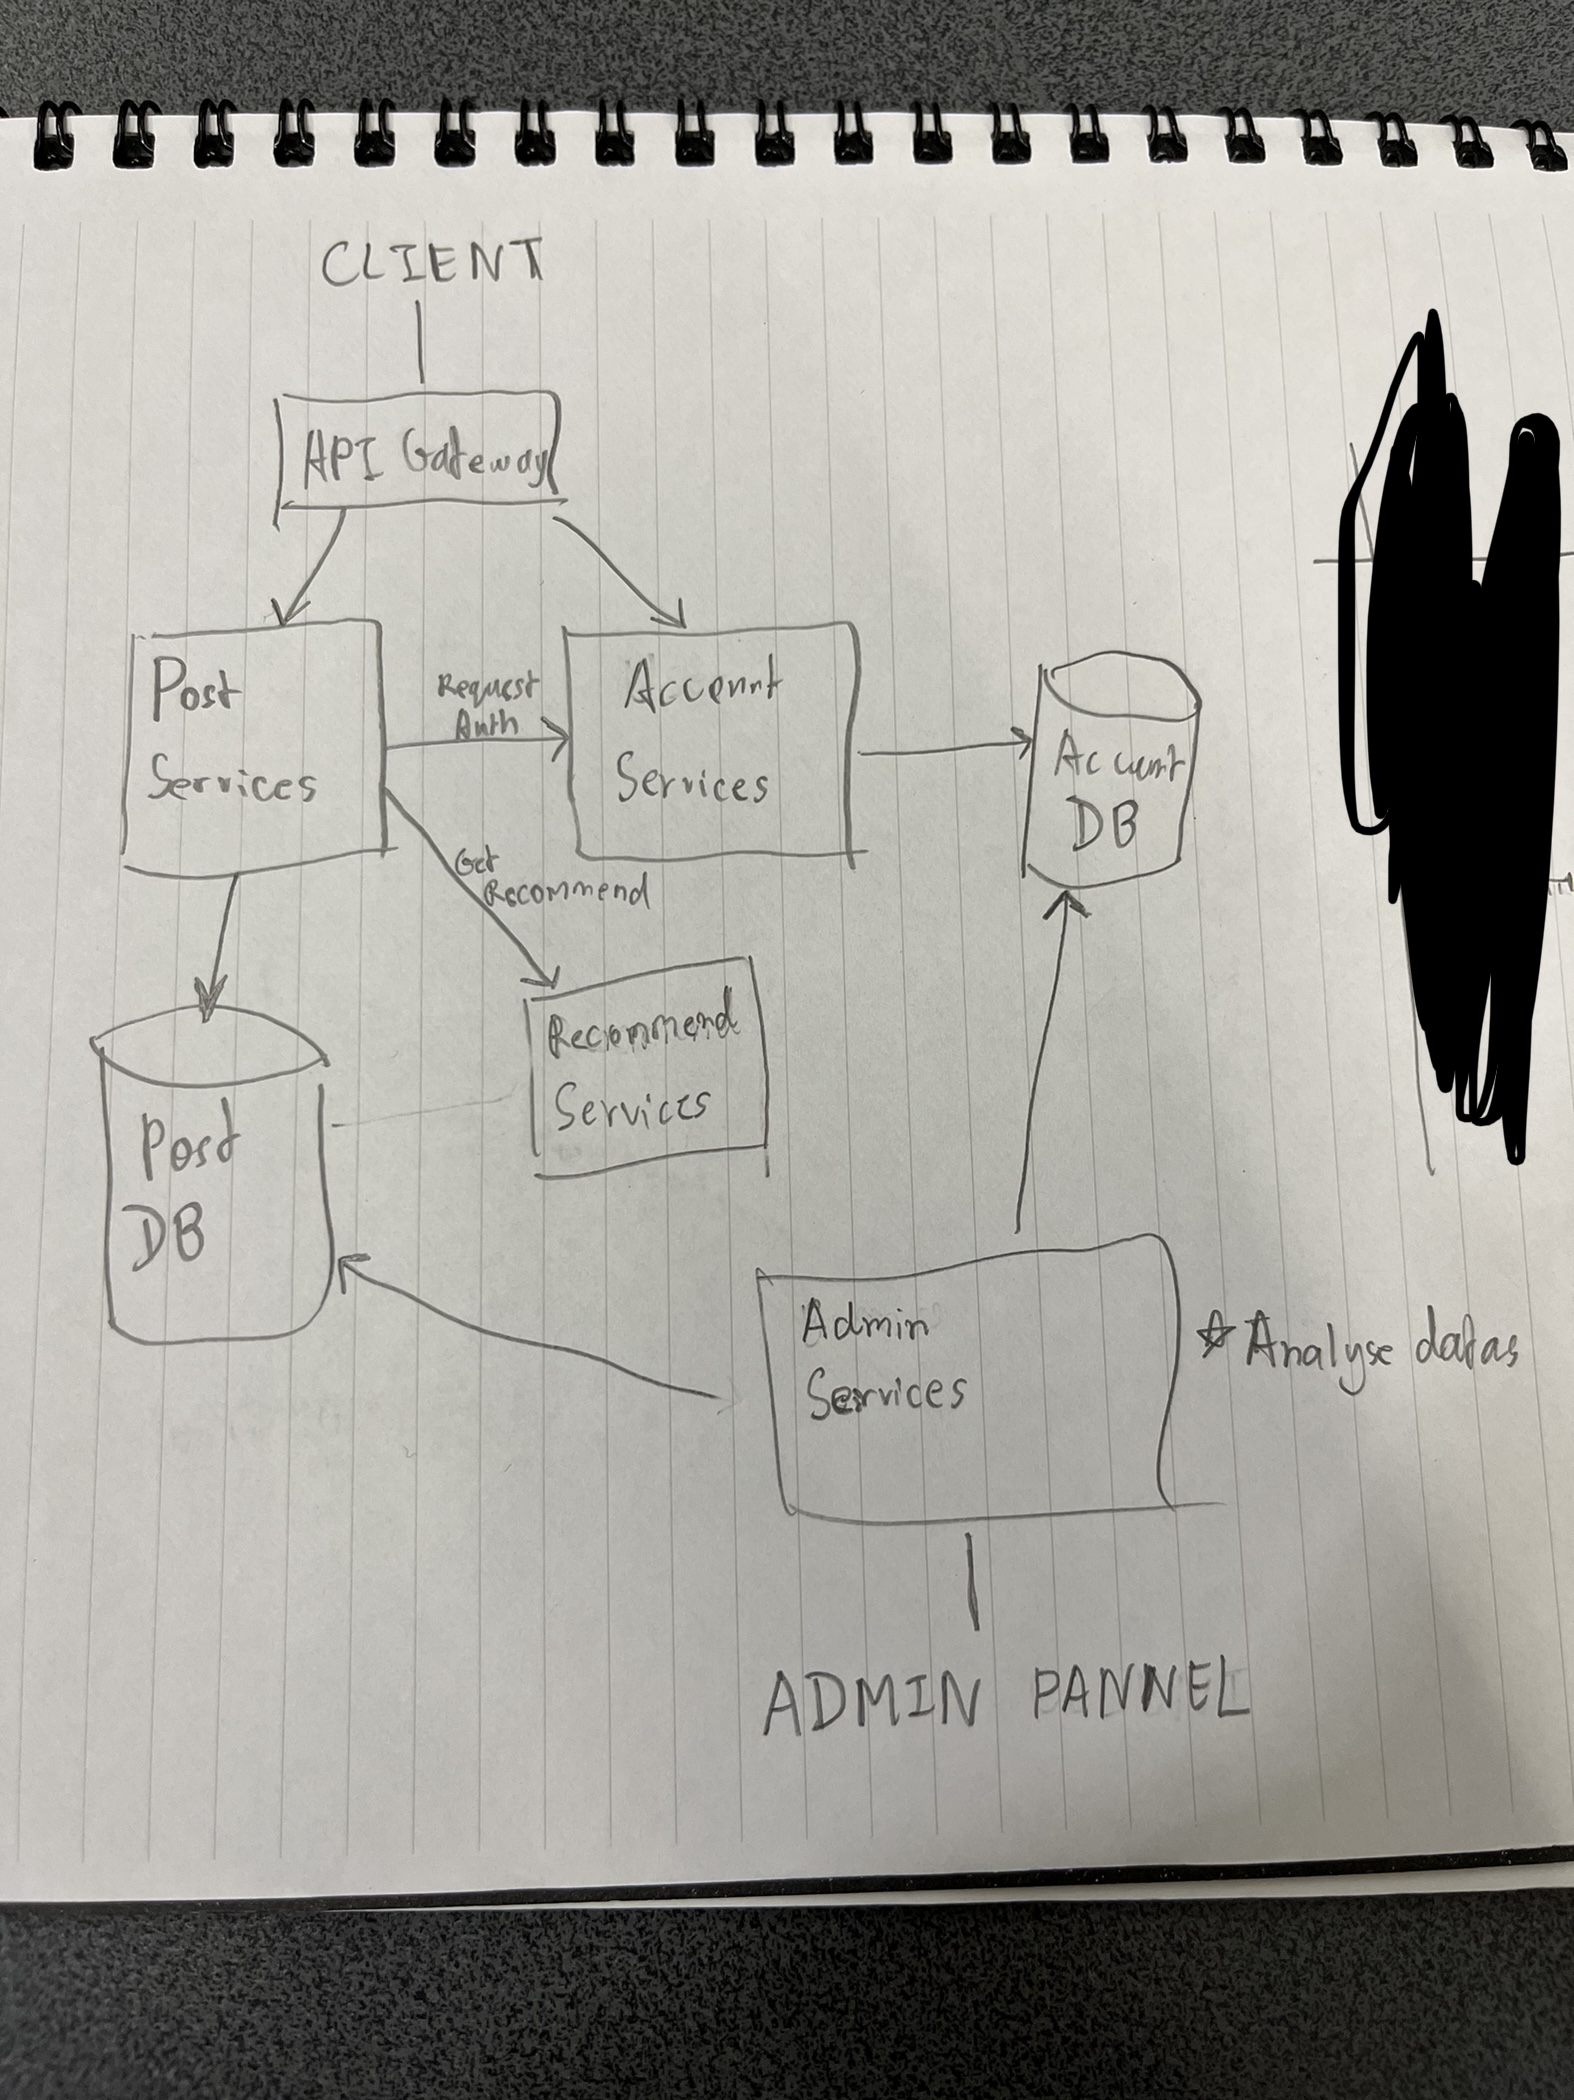 CLIENT
API Gateway
Post
Services
Request
Auth
Account
Services
Account
DB
Get
Recommend
Recommend
Services
Post
DB
Admin
Services
☆ Analyse datas
ADMIN PANNEL